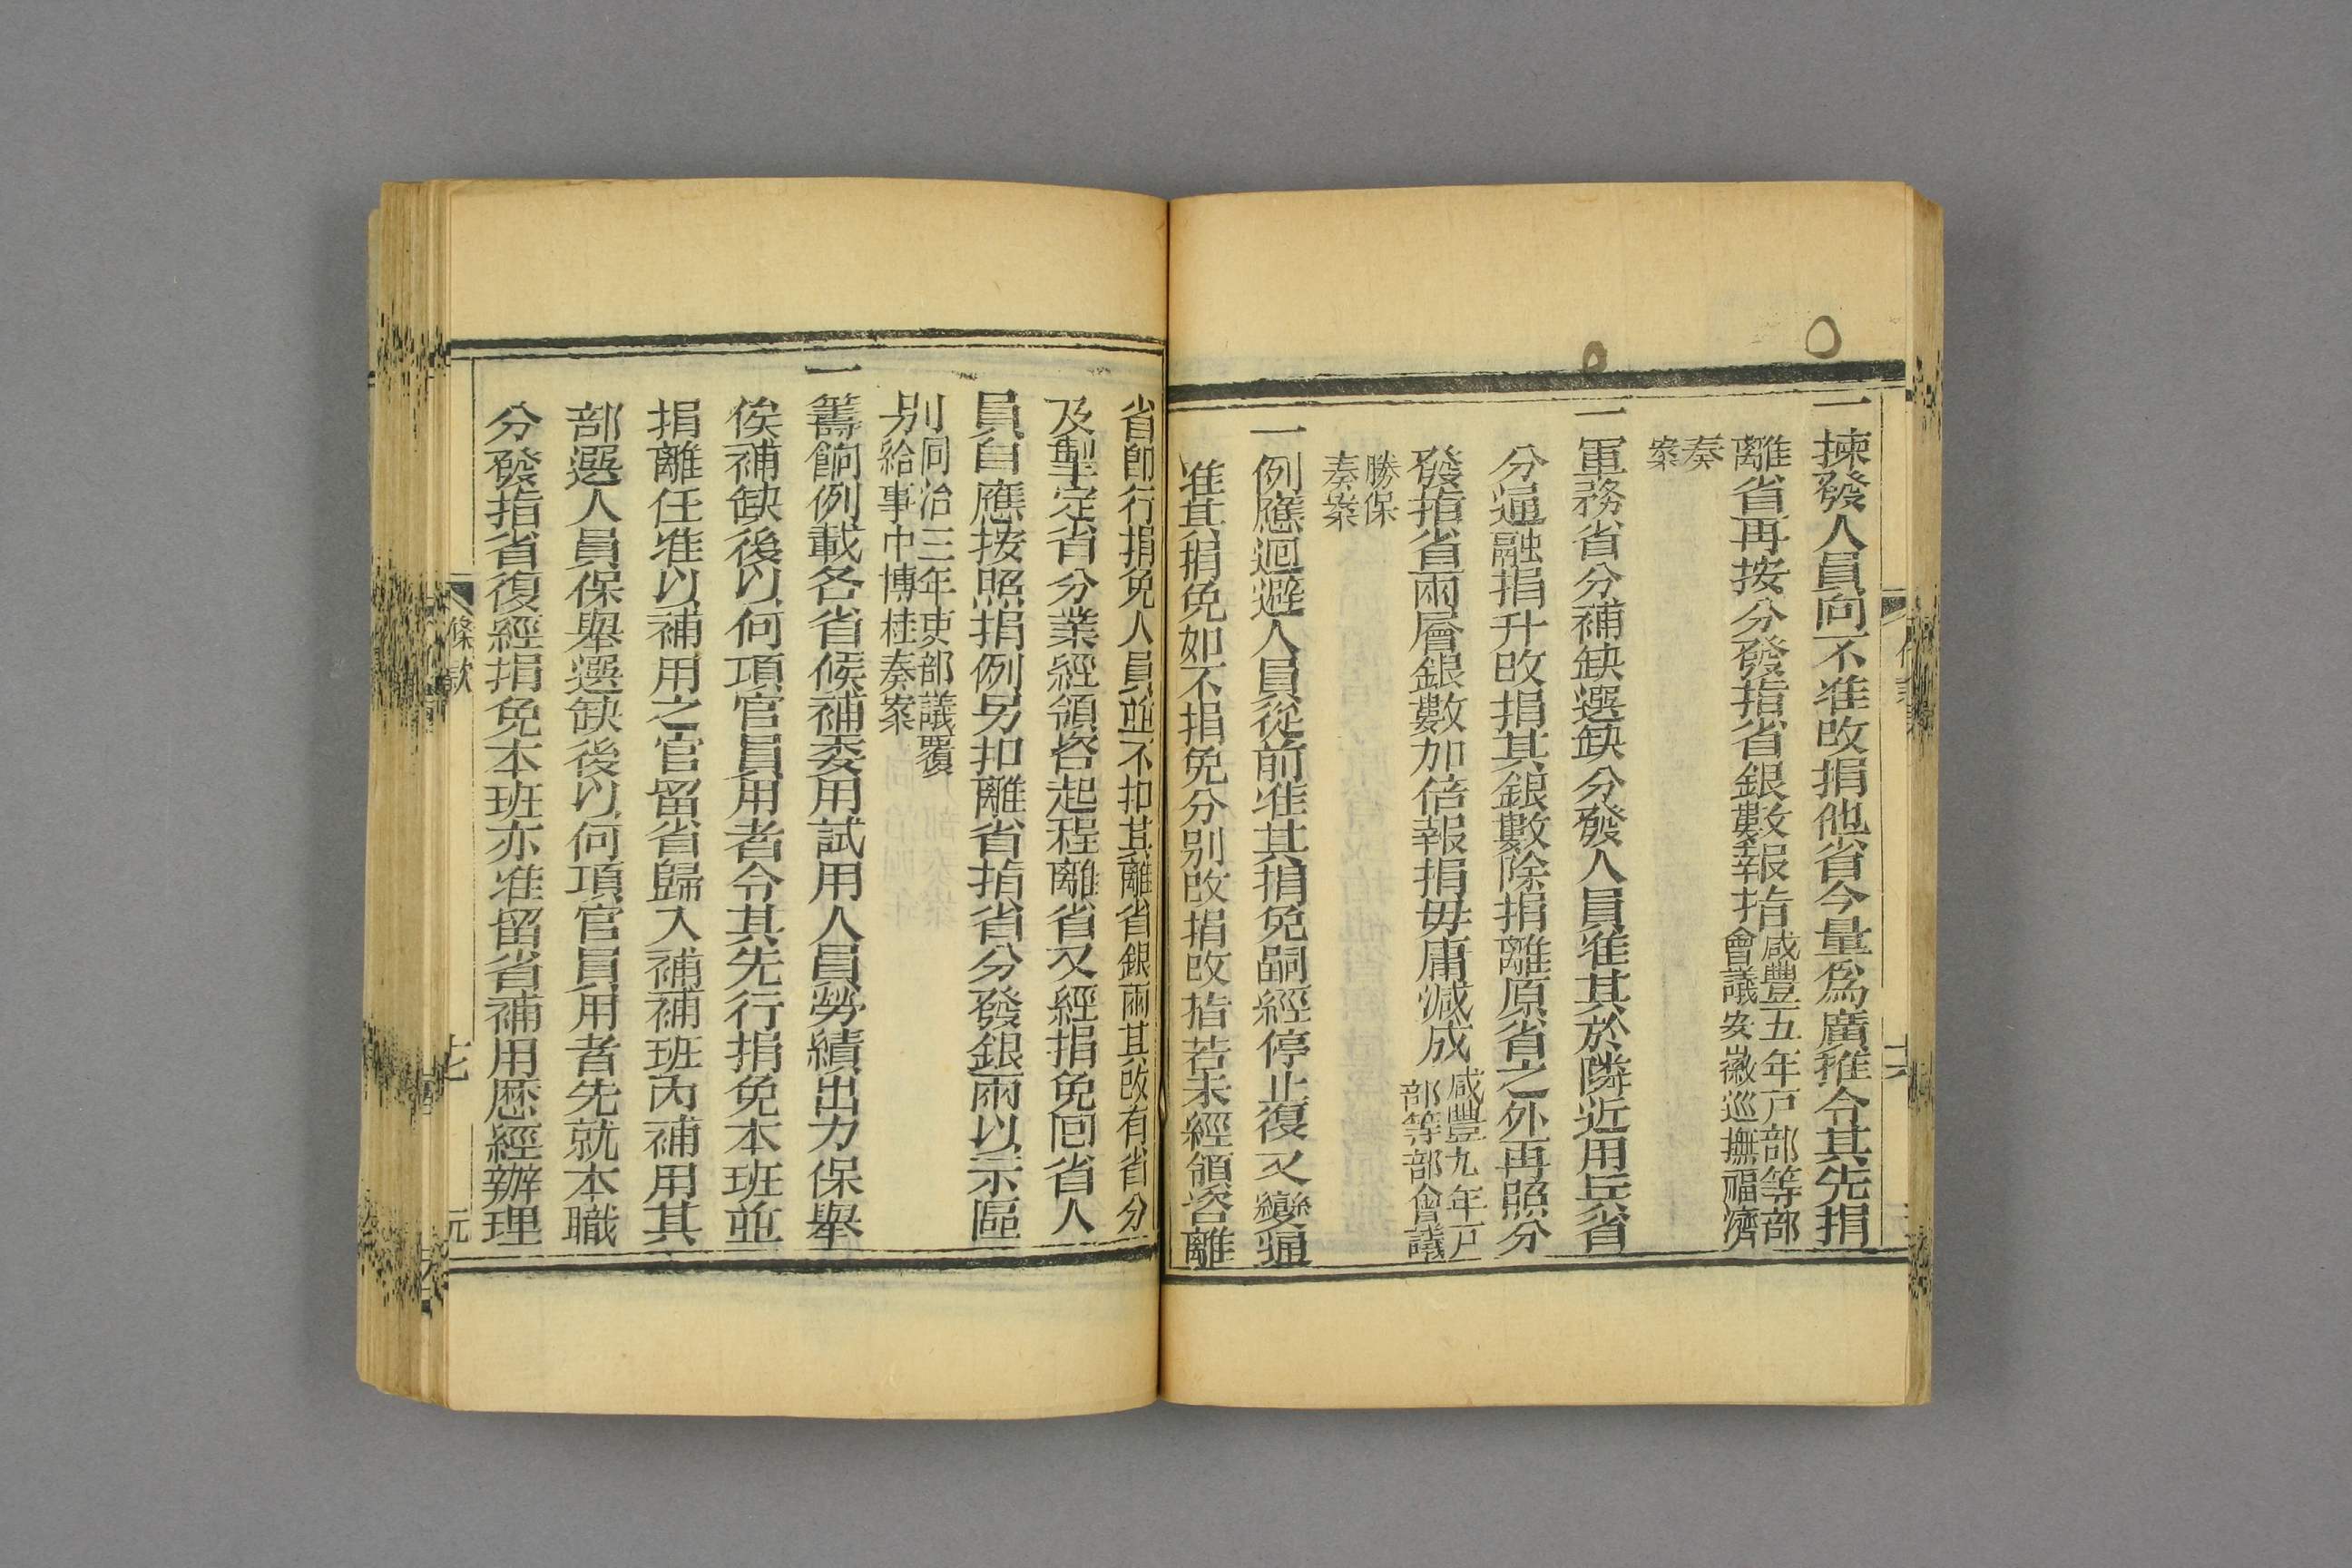 一揀發人員向不准改捐他省今量爲廣推令其先捐
離省再按分發指省銀數報捐咸豐五年戸部等部
會議安徽巡撫福濟
奏
案
一軍務省分補缺選缺分發人員准其於隣近用兵省
分通融捐升改捐其銀數除捐離原省之外再照分
發指省兩層銀數加倍報捐毋庸減成咸豐九年戸
部等部會議
勝保
奏案
一例應迴避人員從前准其捐免嗣經停止復又變通
准其捐免如不捐免分別改捐改指若未經領咨離
省卽行捐免人員並不扣其離省銀兩其改有省分
及掣定省分業經領咨起程離省又經捐免回省人
員自應按照捐例另扣離省指省分發銀兩以示區
别同治三年吏部議覆
給事中博桂奏案
一籌餉例載各省候補委用試用人員勞績出力保舉
俟補缺後以何項官員用者令其先行捐免本班並
捐離任准以補用之官留省歸入補補班內補用其
部選人員保舉選缺後以何項官員用者先就本職
分發指省復經捐免本班亦准留省補用歷經辦理
條款
十七
元
十六